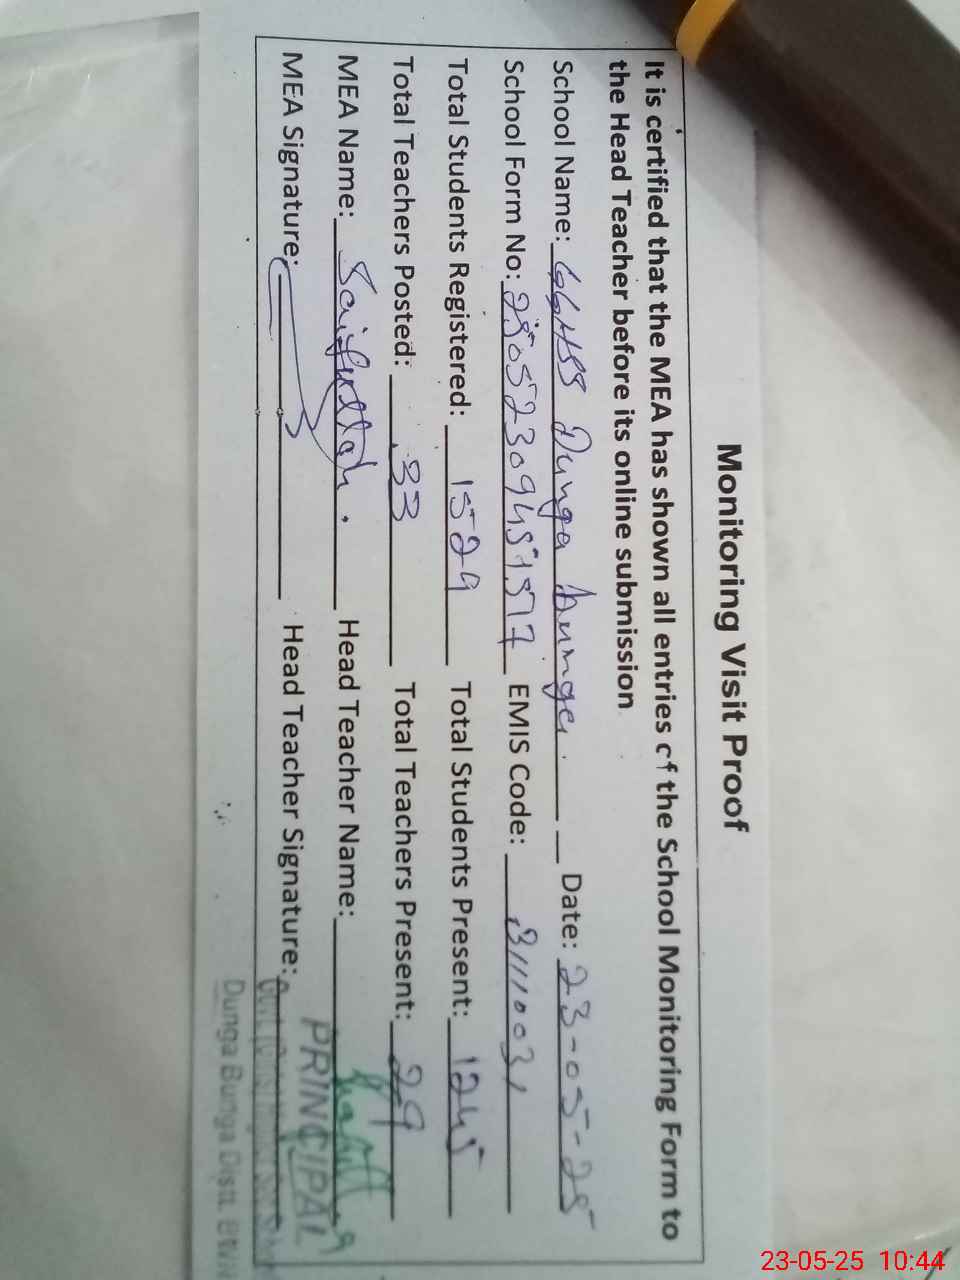 Monitoring Visit Proof
It is certified that the MEA has shown all entries of the School Monitoring Form to
the Head Teacher before its online submission
School Name: GGHSS Dunga bunga. Date: 23-05-25
School Form No: 250523094545 EMIS Code: 31110031
Total Students Registered: 1529 Total Students Present: 1245
Total Teachers Posted: 33 Total Teachers Present: 29
MEA Name: Saifullah. Head Teacher Name:
MEA Signature: Head Teacher Signature:
PRINCIPAL
Dunga Bunga Distt. BWN
23-05-25 10:44